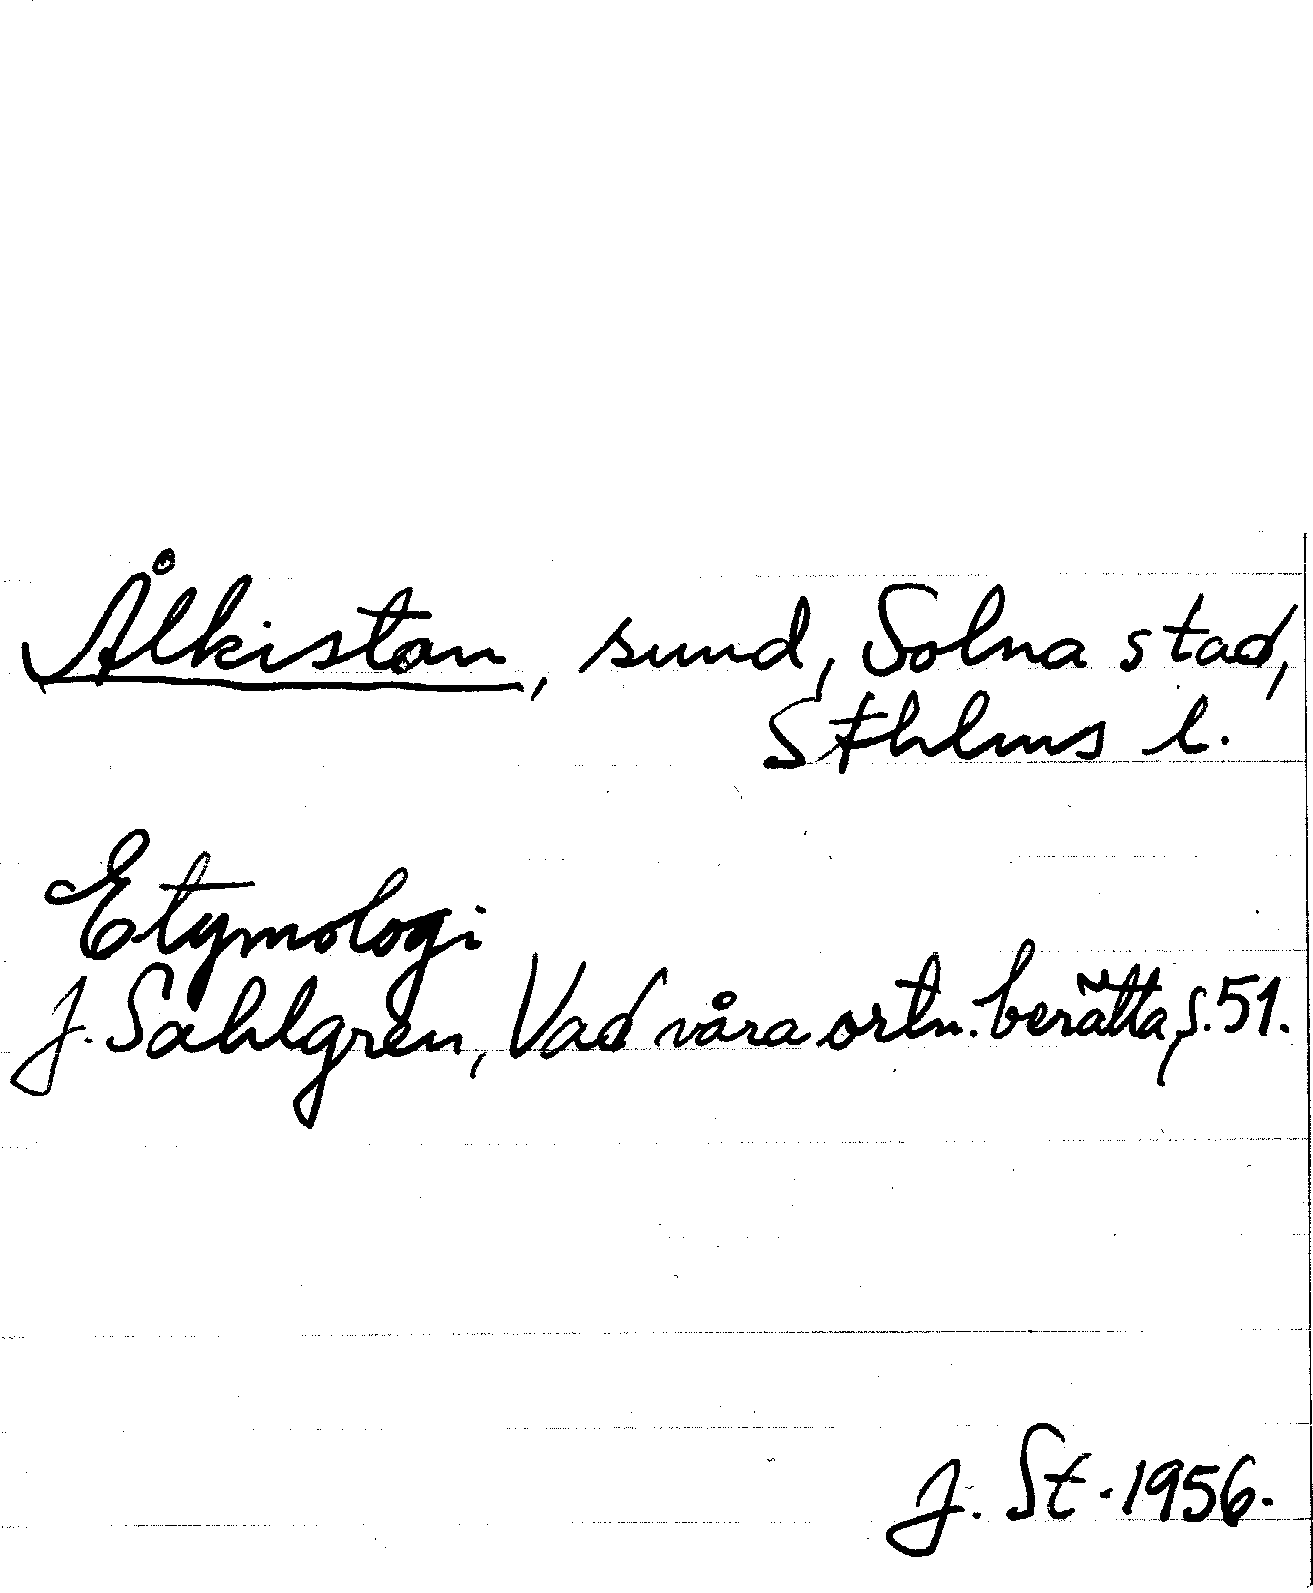 Ålkistan, sund, Solna stad,
Sthlms l.
Etymologi
J. Sahlgren, Vad våra ortn. berätta, s. 51.
J. St. 1956.